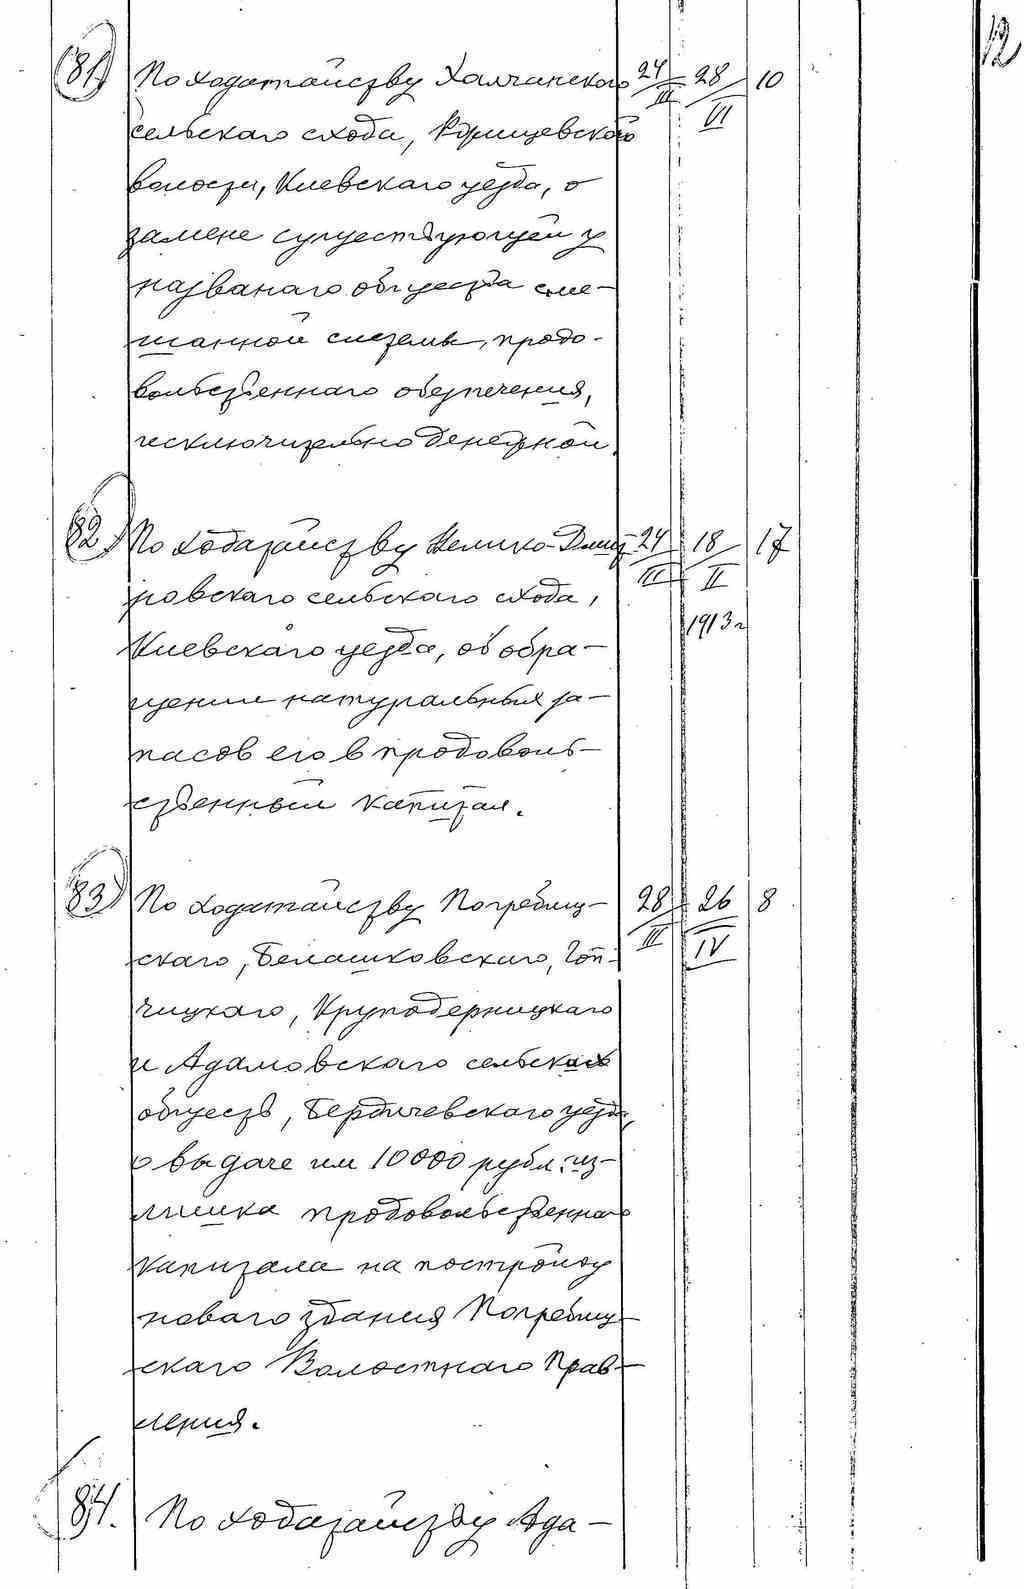 12
81) По ходатайству Халчанского 24/III 28/VI 10
сельскаго схода,
волости, Киевскаго уезда, о
замене существующей у
названаго общества сме-
шанной системы, продо-
вольственнаго обезпечения,
исключительно денежной.
82) По ходатайству Велико-Дмит 24/III 18/II 17
ровскаго сельскаго схода, 1913 г
Киевскаго уезда, об обра-
щении натуральных за-
пасов его в продоволь-
ственный капитал.
83) По ходатайству Погребищ- 28/III 26/IV 8
скаго, Белашковскаго, Гоп-
чицкаго, Круподерницкаго
и Адамовскаго сельских
обществ, Бердичевскаго уезда,
о выдаче им 10000 рубл. из-
лишка продовольственнаго
капитала на постройку
новаго здания Погребищ-
скаго Волостнаго Прав-
ления.
84. По ходатайству Ада-